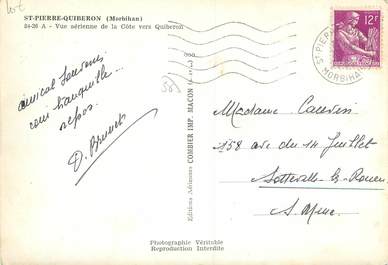 ST-PIERRE-QUIBERON (Morbihan)
24-26 A - Vue aérienne de la Côte vers Quiberon
12F
ST PIERRE
MORBIHAN
58
amical souvenir
tranquille...
repos.
D.
Editions Aériennes COMBIER IMP. MACON
Madame Cauvin
158 ave du 14 Juillet
Sotteville-lès-Rouen
S. Mme.
Photographie Véritable
Reproduction Interdite